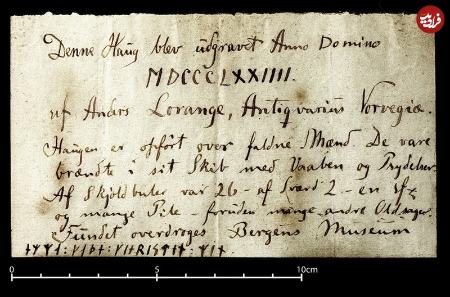 Denne Haug blev udgravet Anno Domino
MDCCCLXXIIII.
af Anders Lorange, Antiqvarius Norvegiæ.
Haugen er opført over faldne Mænd. De vare
brændte i sit Skib med Vaaben og Prydelser.
Af Skjoldbuler var 26 - af Sværd 2 - en
og mange Pile - foruden mange andre Oldsager.
Fundet overdroges Bergens Museum
0 5 10cm
فرادید